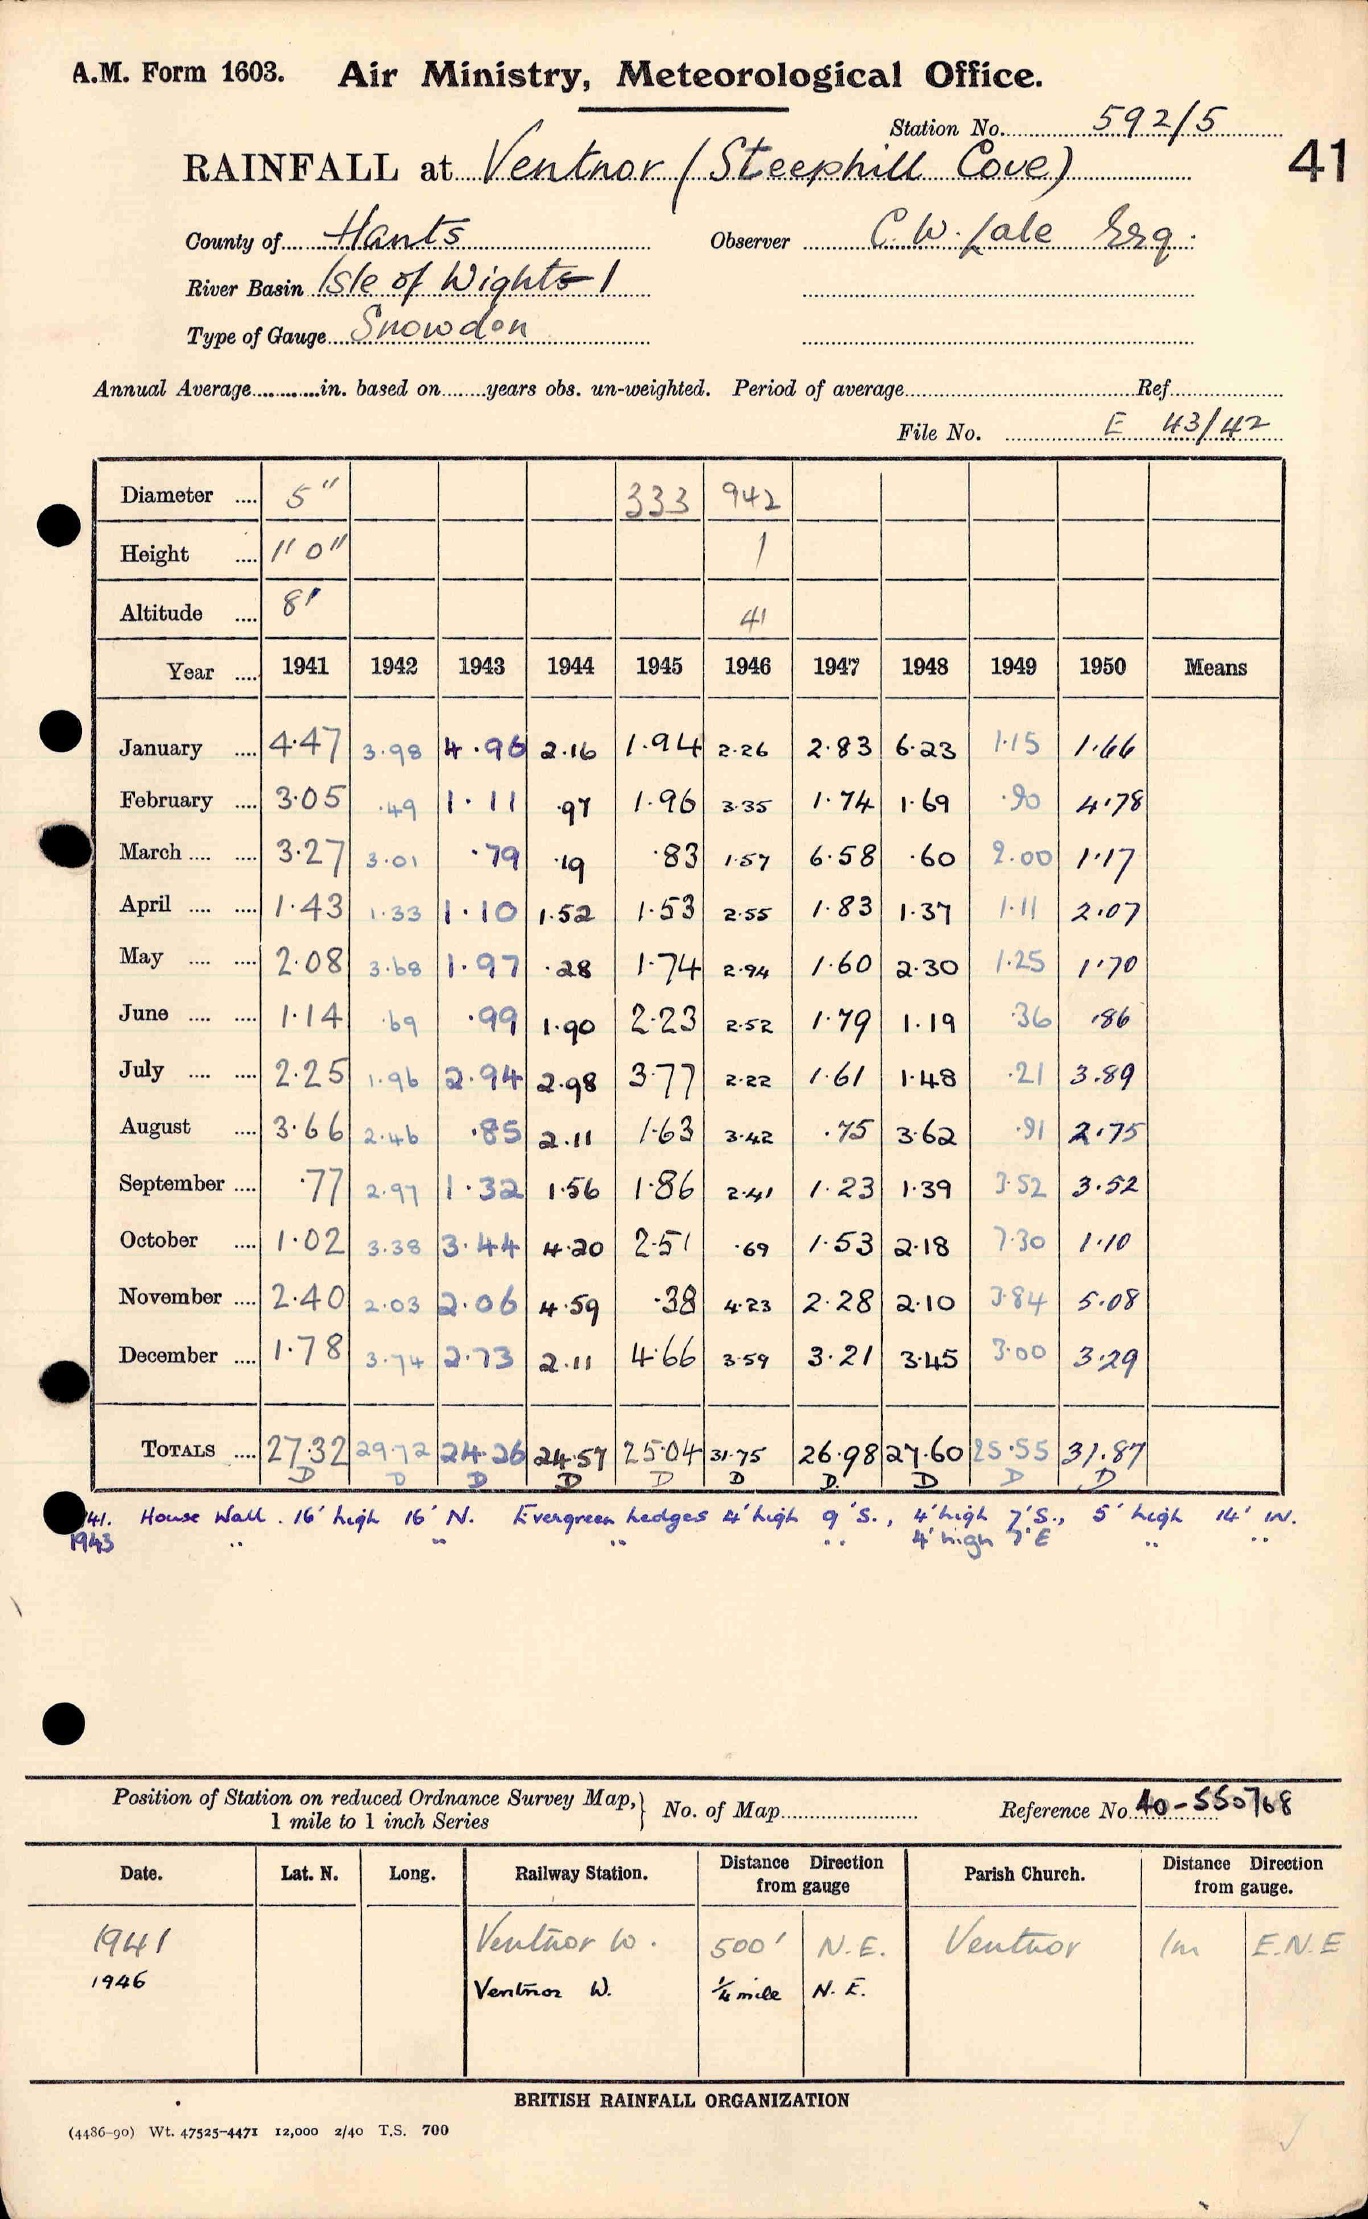 A.M. Form 1603. Air Ministry, Meteorological Office.
Station No. 592/5
RAINFALL at Ventnor (Steephill Cove) 41
County of Hants Observer C. W. Lale Esq.
River Basin Isle of Wight 1
Type of Gauge Snowdon
Annual Average in. based on years obs. un-weighted. Period of average Ref.
File No. E 43/42
Diameter 5" 333 942
Height 1' 0" 1
Altitude 8' 41
Year 1941 1942 1943 1944 1945 1946 1947 1948 1949 1950 Means
January 4.47 3.98 4.96 2.16 1.94 2.26 2.83 6.23 1.15 1.66
February 3.05 .49 1.11 .97 1.96 3.35 1.74 1.69 .90 4.78
March 3.27 3.01 .79 .19 .83 1.57 6.58 .60 2.00 1.17
April 1.43 1.33 1.10 1.52 1.53 2.55 1.83 1.37 1.11 2.07
May 2.08 3.68 1.97 .28 1.74 2.94 1.60 2.30 1.25 1.70
June 1.14 .69 .99 1.90 2.23 2.52 1.79 1.19 .36 .86
July 2.25 1.96 2.94 2.98 3.77 2.22 1.61 1.48 .21 3.89
August 3.66 2.46 .85 2.11 1.63 3.42 .75 3.62 .91 2.75
September .77 2.97 1.32 1.56 1.86 2.41 1.23 1.39 3.52 3.52
October 1.02 3.38 3.44 4.20 2.51 .69 1.53 2.18 7.30 1.10
November 2.40 2.03 2.06 4.59 .38 4.23 2.28 2.10 3.84 5.08
December 1.78 3.74 2.73 2.11 4.66 3.59 3.21 3.45 3.00 3.29
TOTALS 27.32 29.72 24.26 24.57 25.04 31.75 26.98 27.60 25.55 31.87
D D D D D D D D D D
41. House Wall. 16' high 16' N. Evergreen hedges 4' high 9' S., 4' high 7' S., 5' high 14' W.
1943 " " " " 4' high 7' E " "
Position of Station on reduced Ordnance Survey Map, 1 mile to 1 inch Series } No. of Map Reference No. 40-550768
Date. Lat. N. Long. Railway Station. Distance Direction from gauge Parish Church. Distance Direction from gauge.
1941 Ventnor W. 500' N.E. Ventnor 1m E.N.E
1946 Ventnor W. 1/4 mile N.E.
BRITISH RAINFALL ORGANIZATION
(4486-90) Wt. 47525-4471 12,000 2/40 T.S. 700